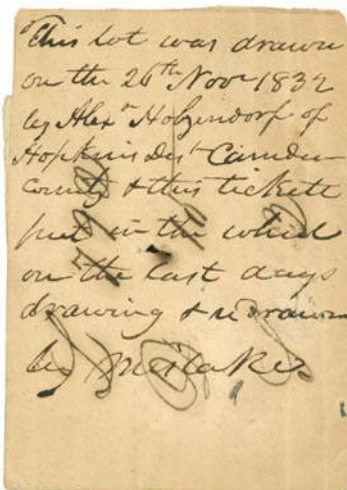 This lot was drawn
on the 26th Novr 1832
by Alexr Holzendorf of
Hopkins Dist Camden
County & this tickett
put in the wheel
on the last days
drawing & redrawn
by mistake